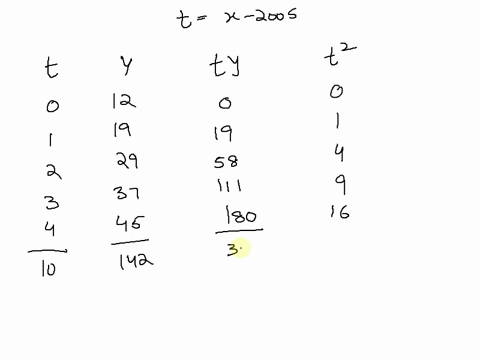 t = x-2005
t y ty t²
0 12 0 0
1 19 19 1
2 29 58 4
3 37 111 9
4 45 180 16
10 142 3